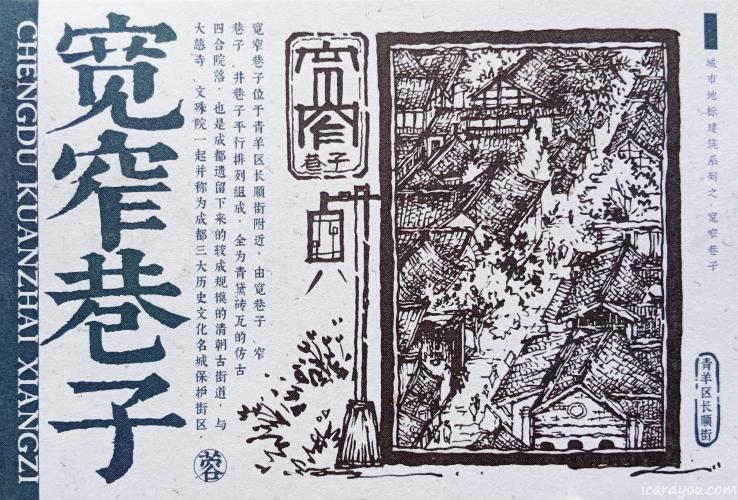 CHENGDU KUANZHAI XIANGZI
宽窄巷子
宽窄巷子位于青羊区长顺街附近，由宽巷子、窄
巷子、井巷子平行排列组成，全为青黛砖瓦的仿古
四合院落，也是成都遗留下来的较成规模的清朝古街道，与
大慈寺、文殊院一起并称为成都三大历史文化名城保护街区。
蓉
宽窄
巷子
城市地标建筑系列之·宽窄巷子
青羊区长顺街
icardyou.com